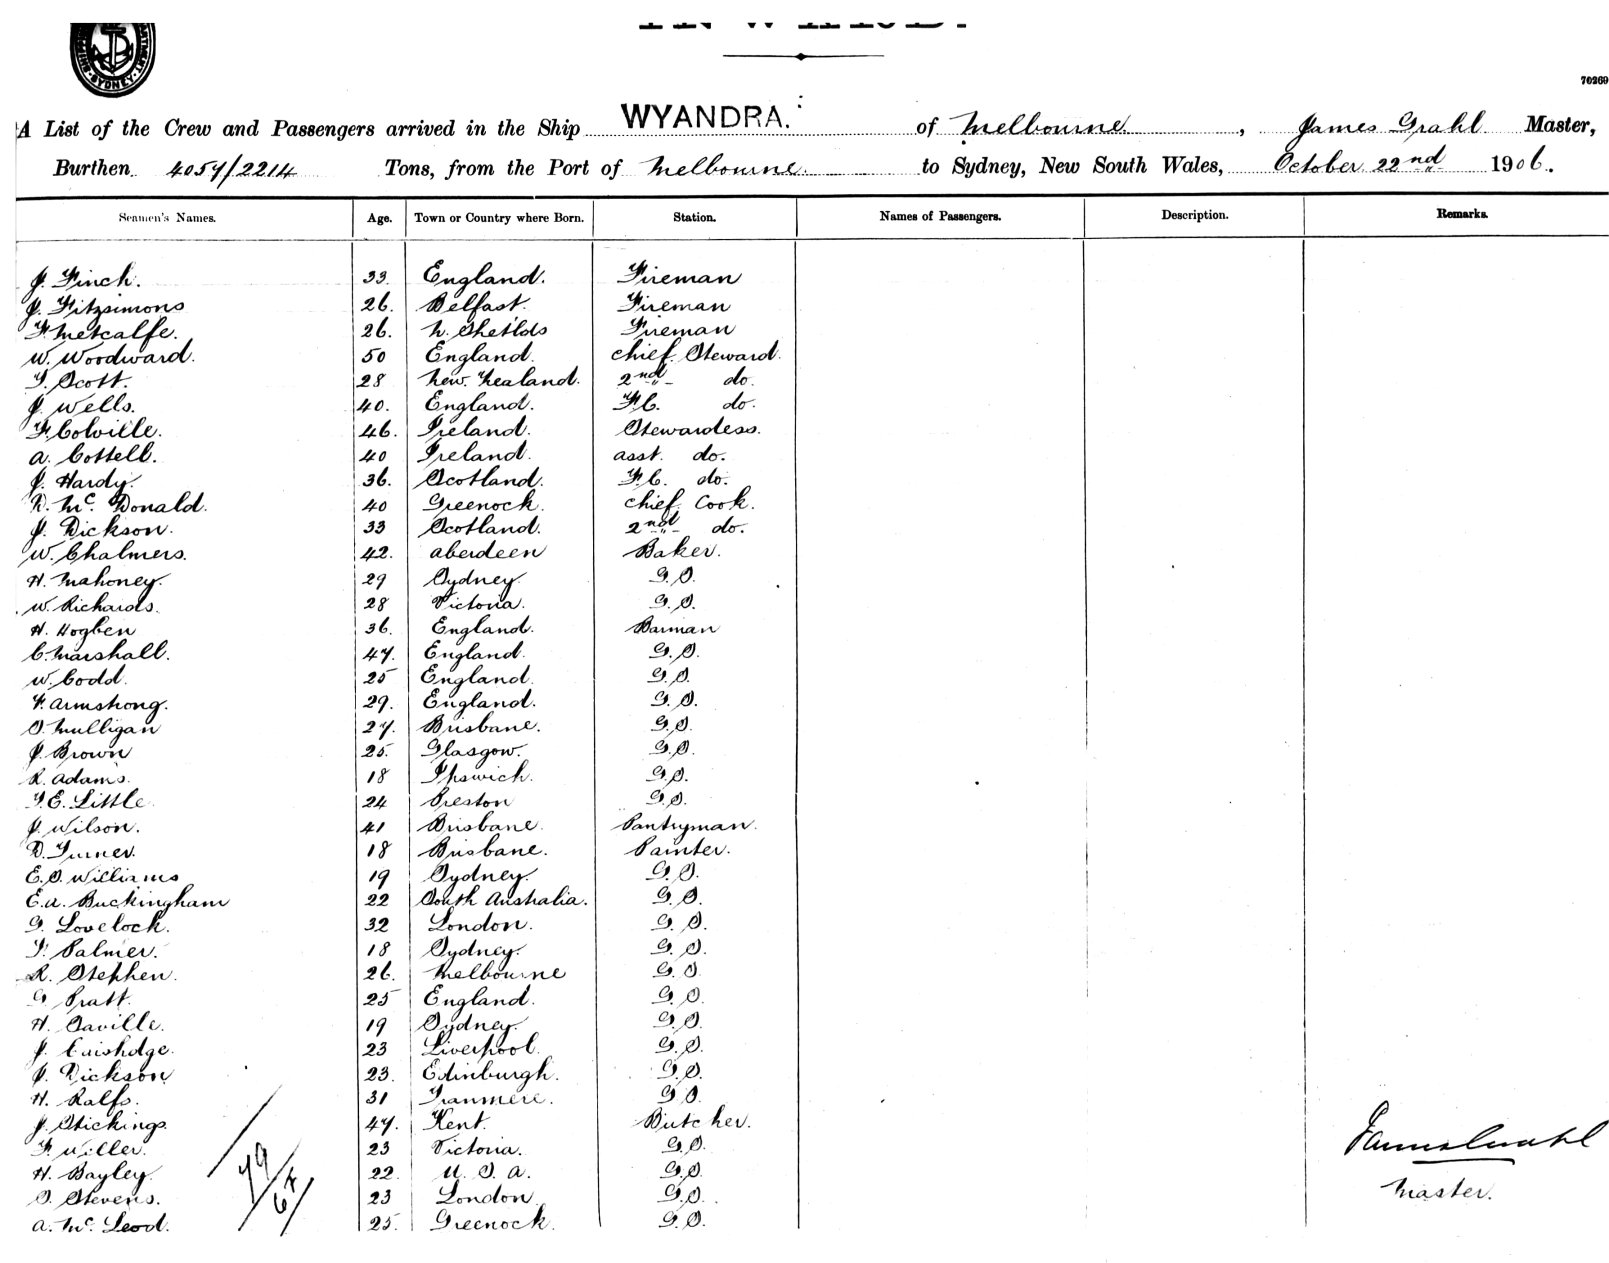 SYDNEY
70269
A List of the Crew and Passengers arrived in the Ship WYANDRA. of Melbourne, James Grahl Master,
Burthen 4054/2214 Tons, from the Port of Melbourne to Sydney, New South Wales, October 22nd 1906.
Seamen's Names. Age. Town or Country where Born. Station. Names of Passengers. Description. Remarks.
J. Finch. 33. England. Fireman
J. Fitzsimons 26. Belfast. Fireman
F. Metcalfe. 26. N. Sheilds Fireman
W. Woodward. 50 England. Chief Steward.
T. Scott. 28 New Zealand. 2nd do.
J. Wells. 40. England. F.C. do.
F. Colville. 46. Ireland. Stewardess.
A. Cottell. 40 Ireland. asst. do.
J. Hardy. 36. Scotland. F.C. do.
D. Mc. Donald. 40 Greenock. Chief Cook.
J. Dickson. 33 Scotland. 2nd do.
W. Chalmers. 42. Aberdeen Baker.
H. Mahoney. 29 Sydney. G.S.
W. Richards. 28 Victoria. G.S.
H. Hogben 36. England. Barman
C. Marshall. 47. England. G.S.
W. Codd. 25 England. G.S.
F. Armstrong. 29. England. G.S.
O. Mulligan 27. Brisbane. G.S.
J. Brown 25. Glasgow. G.S.
R. Adams. 18 Ipswich. G.S.
T. E. Little. 24 Preston G.S.
J. Wilson. 41 Brisbane. Pantryman.
D. Turner. 18 Brisbane. Painter.
E. S. Williams 19 Sydney. G.S.
E. A. Buckingham 22 South Australia. G.S.
G. Lovelock. 32 London. G.S.
F. Palmer. 18 Sydney. G.S.
R. Stephen. 26. Melbourne G.S.
G. Pratt. 25 England. G.S.
H. Saville. 19 Sydney. G.S.
J. 23 Liverpool. G.S.
J. Dickson 23. Edinburgh. G.S.
H. Ralfs. 31 Tranmere. G.S.
J. Stickings. 47. Kent. Butcher.
F. Miller. 23 Victoria. G.S.
H. Bayley. 22. U. S. A. G.S.
S. Stevens. 23 London G.S.
A. Mc. Leod. 25. Greenock. G.S.
79/64/
James Grahl
Master.